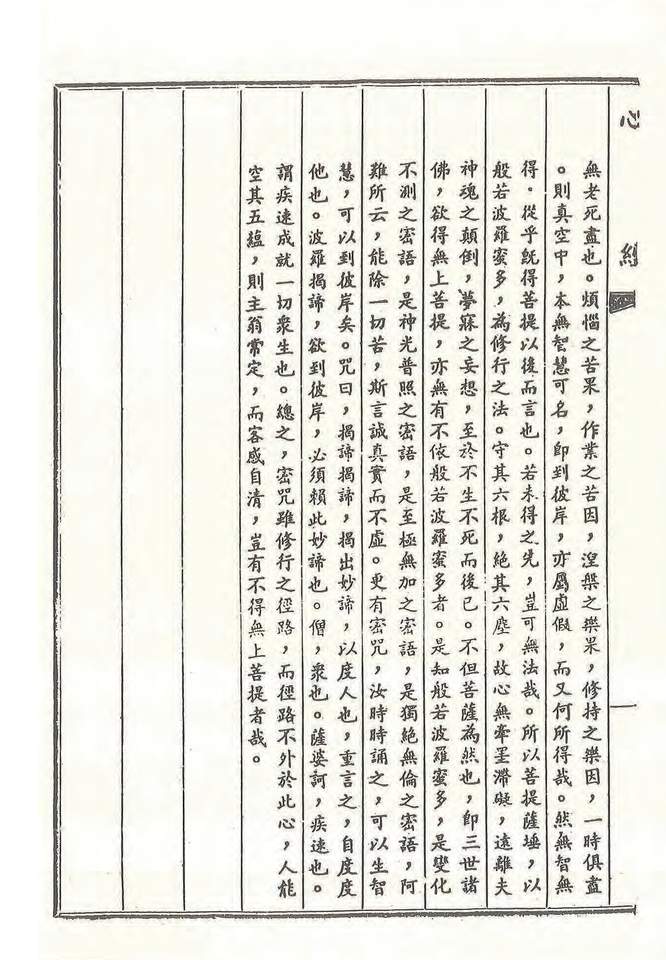 心經
一
無老死盡也。煩惱之苦果，作業之苦因，湼槃之樂果，修持之樂因，一時俱盡
。則真空中，本無智慧可名，卽到彼岸，亦屬虛假，而又何所得哉。然無智無
得。從乎旣得菩提以後而言也。若未得之先，豈可無法哉。所以菩提薩埵，以
般若波羅蜜多，為修行之法。守其六根，絕其六塵，故心無牽罣滯礙，遠離夫
神魂之顛倒，夢寐之妄想，至於不生不死而後已。不但菩薩為然也，卽三世諸
佛，欲得無上菩提，亦無有不依般若波羅蜜多者。是知般若波羅蜜多，是變化
不測之密語，是神光普照之密語，是至極無加之密語，是獨絕無倫之密語，阿
難所云，能除一切苦，斯言誠真實而不虛。更有密咒，汝時時誦之，可以生智
慧，可以到彼岸矣。咒曰，揭諦揭諦，揭出妙諦，以度人也，重言之，自度度
他也。波羅揭諦，欲到彼岸，必須賴此妙諦也。僧，衆也。薩婆訶，疾速也。
謂疾速成就一切衆生也。總之，密咒雖修行之徑路，而徑路不外於此心，人能
空其五蘊，則主翁常定，而客感自清，豈有不得無上菩提者哉。